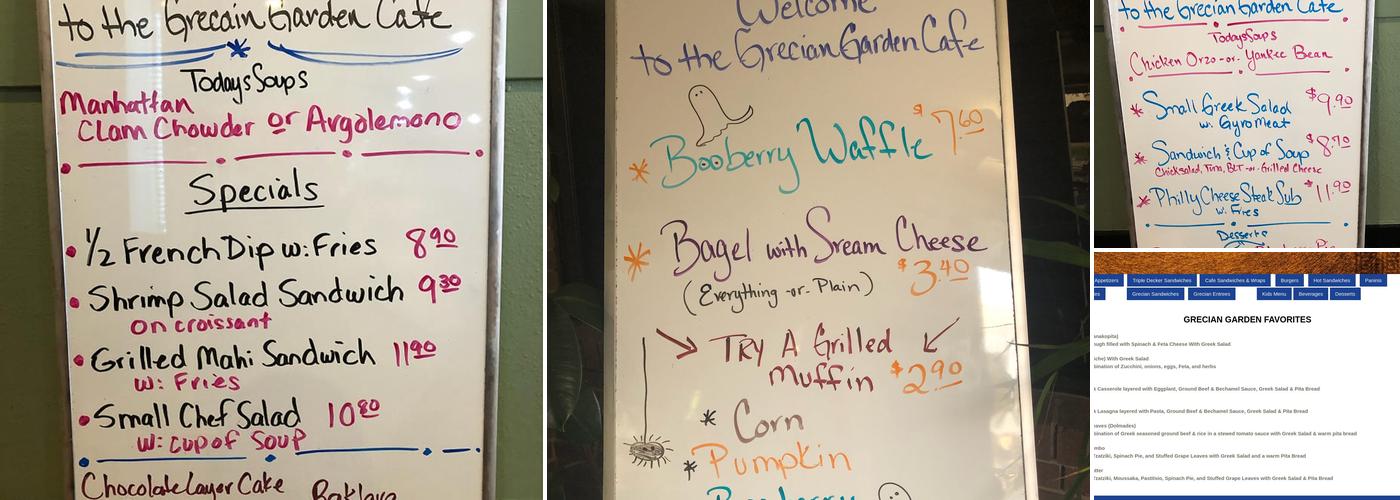 to the Grecain Garden Cafe
Todays Soups
Manhattan
Clam Chowder or Argolemono
Specials
1/2 French Dip w: Fries 8 90
Shrimp Salad Sandwich 9 30
on croissant
Grilled Mahi Sandwich 11 90
w: Fries
Small Chef Salad 10 80
w: cup of soup
Chocolate Layer Cake Baklava
Welcome
to the Grecian Garden Cafe
* Booberry Waffle $7.60
* Bagel with Sream Cheese
(Everything -or- Plain) $3.40
TRY A Grilled
Muffin $2 90
* Corn
* Pumpkin
to the Grecian Garden Cafe
Todays Soups
Chicken Orzo -or- Yankee Bean
* Small Greek Salad $9.90
w: Gyro Meat
* Sandwich & Cup of Soup $8.90
Chicksalad, Tuna, BLT -or- Grilled Cheese
* Philly Cheese Steak Sub $11.90
w: Fries
Desserts
Appetizers Triple Decker Sandwiches Café Sandwiches & Wraps Burgers Hot Sandwiches Paninis
Grecian Sandwiches Grecian Entrees Kids Menu Beverages Desserts
GRECIAN GARDEN FAVORITES
anakopita)
ough filled with Spinach & Feta Cheese With Greek Salad
iche) With Greek Salad
bination of Zucchini, onions, eggs, Feta, and herbs
Casserole layered with Eggplant, Ground Beef & Bechamel Sauce, Greek Salad & Pita Bread
Lasagna layered with Pasta, Ground Beef & Bechamel Sauce, Greek Salad & Pita Bread
eaves (Dolmades)
bination of Greek seasoned ground beef & rice in a stewed tomato sauce with Greek Salad & warm pita bread
mbo
Tzatziki, Spinach Pie, and Stuffed Grape Leaves with Greek Salad and a warm Pita Bread
atter
Tzatziki, Moussaka, Pastitsio, Spinach Pie, and Stuffed Grape Leaves with Greek Salad & Pita Bread